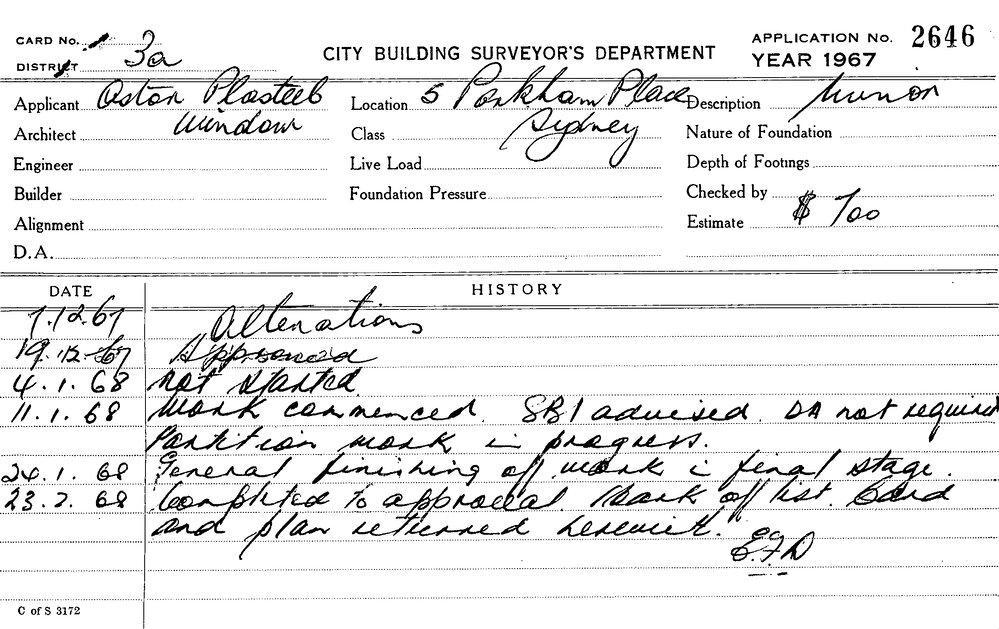 CARD No. 3a
DISTRICT
CITY BUILDING SURVEYOR'S DEPARTMENT
APPLICATION No. 2646
YEAR 1967
Applicant Aston Plasteel Location 5 Parkham Place Description Minor
Architect Window Class Sydney Nature of Foundation
Engineer Live Load Depth of Footings
Builder Foundation Pressure Checked by
Alignment Estimate $ 700
D.A.
DATE HISTORY
7.12.67 Alterations
19.12.67 Approved
4.1.68 Not started
11.1.68 Work commenced. SBI advised. DA not required
Partition work in progress.
24.1.68 General finishing off work in final stage.
23.2.68 Completed to approval. Mark off list. Card
and plan returned herewith.
E.F.D
C of S 3172